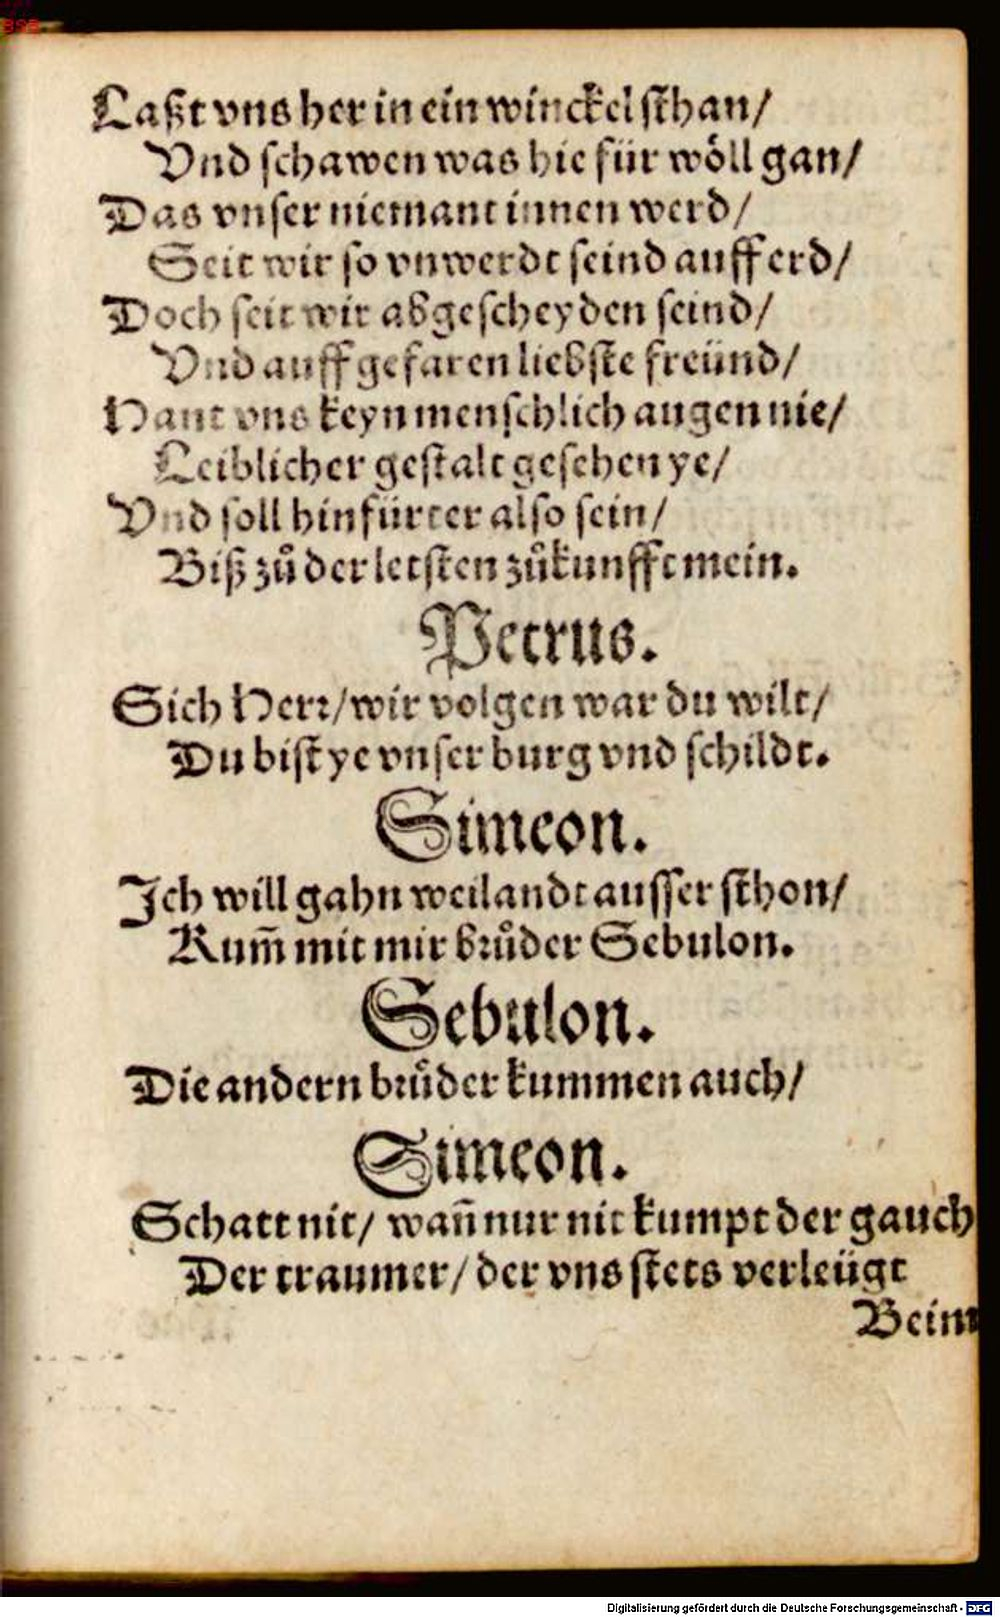 898
Laßt vns her in ein winckel sthan/
Vnd schawen was hie für wöll gan/
Das vnser niemant innen werd/
Seit wir so vnwerdt seind auff erd/
Doch seit wir abgescheyden seind/
Vnd auff gefaren liebste freünd/
Hant vns keyn menschlich augen nie/
Leiblicher gestalt gesehen ye/
Vnd soll hinfürter also sein/
Biß zů der letsten zůkunfft mein.
Petrus.
Sich Herr/wir volgen war du wilt/
Du bist ye vnser burg vnd schildt.
Simeon.
Ich will gahn weilandt ausser sthon/
Kum̃ mit mir brůder Sebulon.
Sebulon.
Die andern brůder kummen auch/
Simeon.
Schatt nit/ wañ nur nit kumpt der gauch
Der traumer/ der vns stets verleügt
Beim
Digitalisierung gefördert durch die Deutsche Forschungsgemeinschaft - DFG